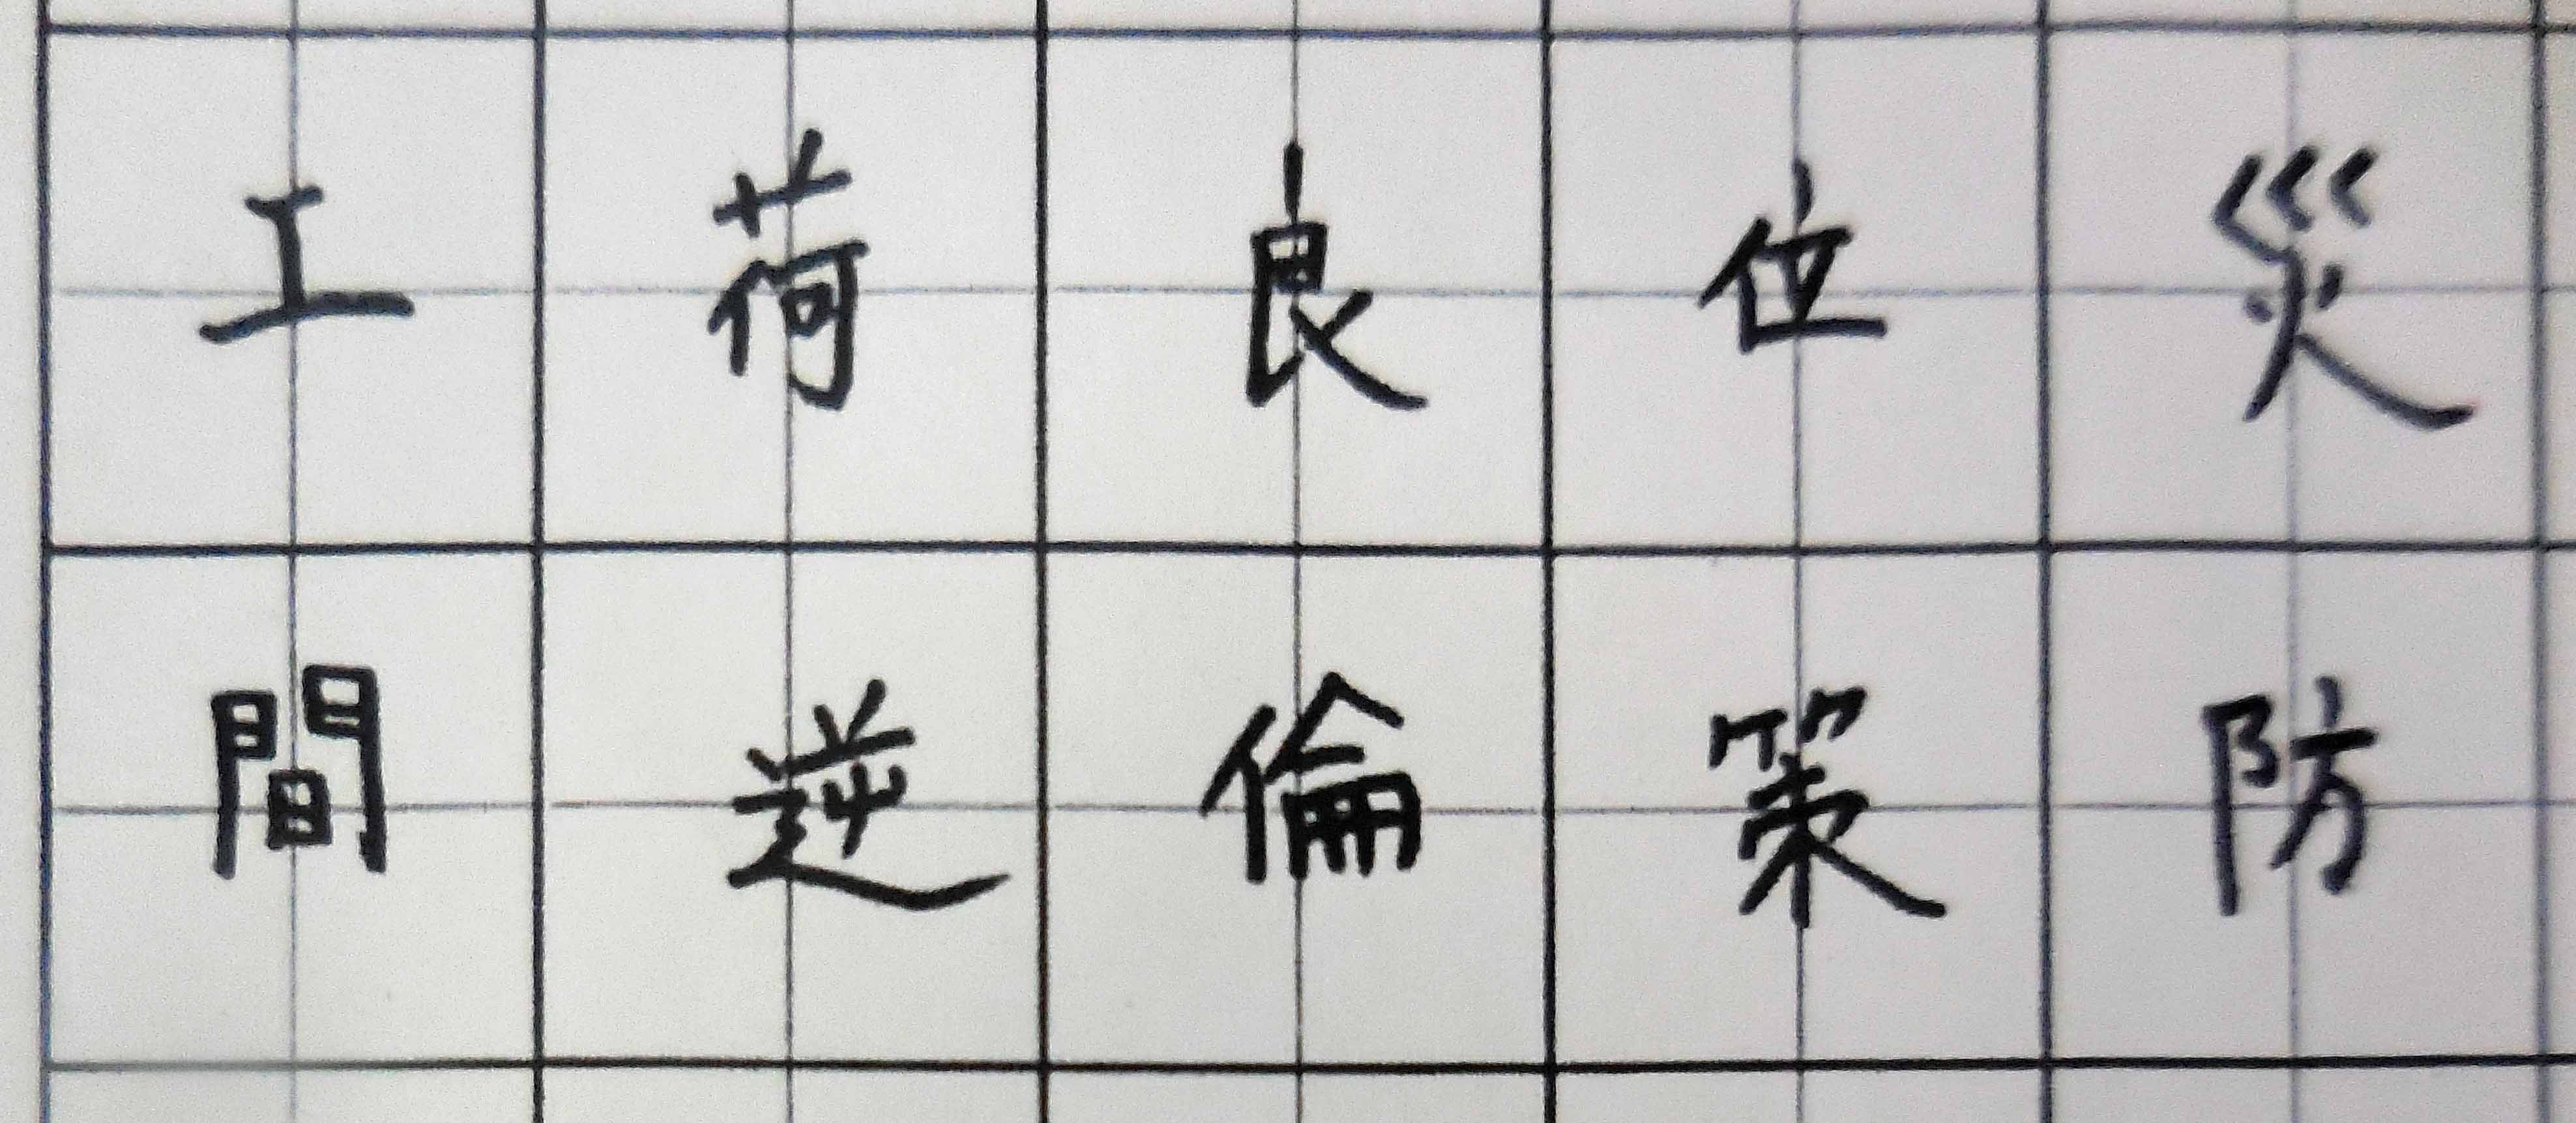 工荷良位災
間逆倫策防